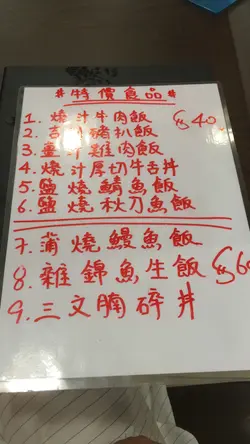 #特價食品#
1. 燒汁牛肉飯 $40
2. 吉列豬扒飯
3. 薑汁雞肉飯
4. 燒汁厚切牛舌丼
5. 鹽燒鯖魚飯
6. 鹽燒秋刀魚飯
7. 蒲燒鰻魚飯
8. 雜錦魚生飯
9. 三文腩碎丼